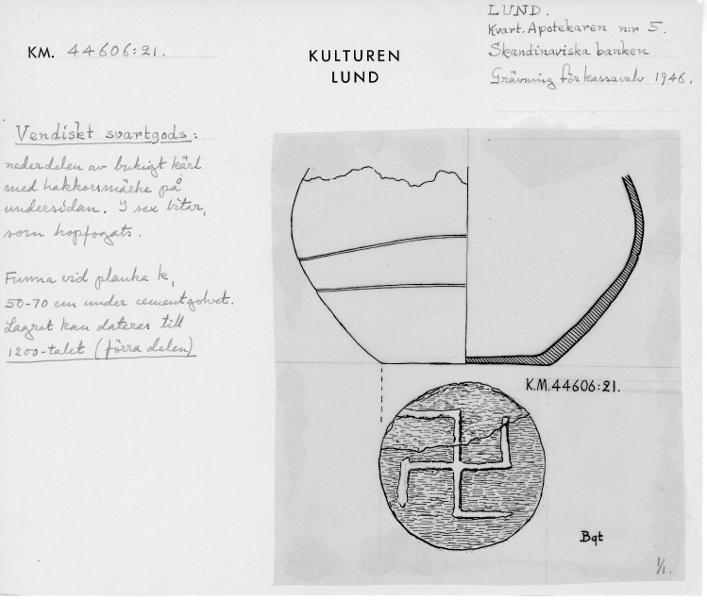 KM. 44606:21.
KULTUREN
LUND
LUND.
Kvart. Apotekaren nr 5.
Skandinaviska banken
Grävning för kassavalv 1946.
Vendiskt svartgods:
nederdelen av bukigt kärl
med hakkorsmärke på
undersidan. I sex bitar,
som hopfogats.
Funna vid planka k,
50-70 cm under cementgolvet.
Lagret kan dateras till
1200-talet (förra delen)
K.M.44606:21.
Bqt
1/1.